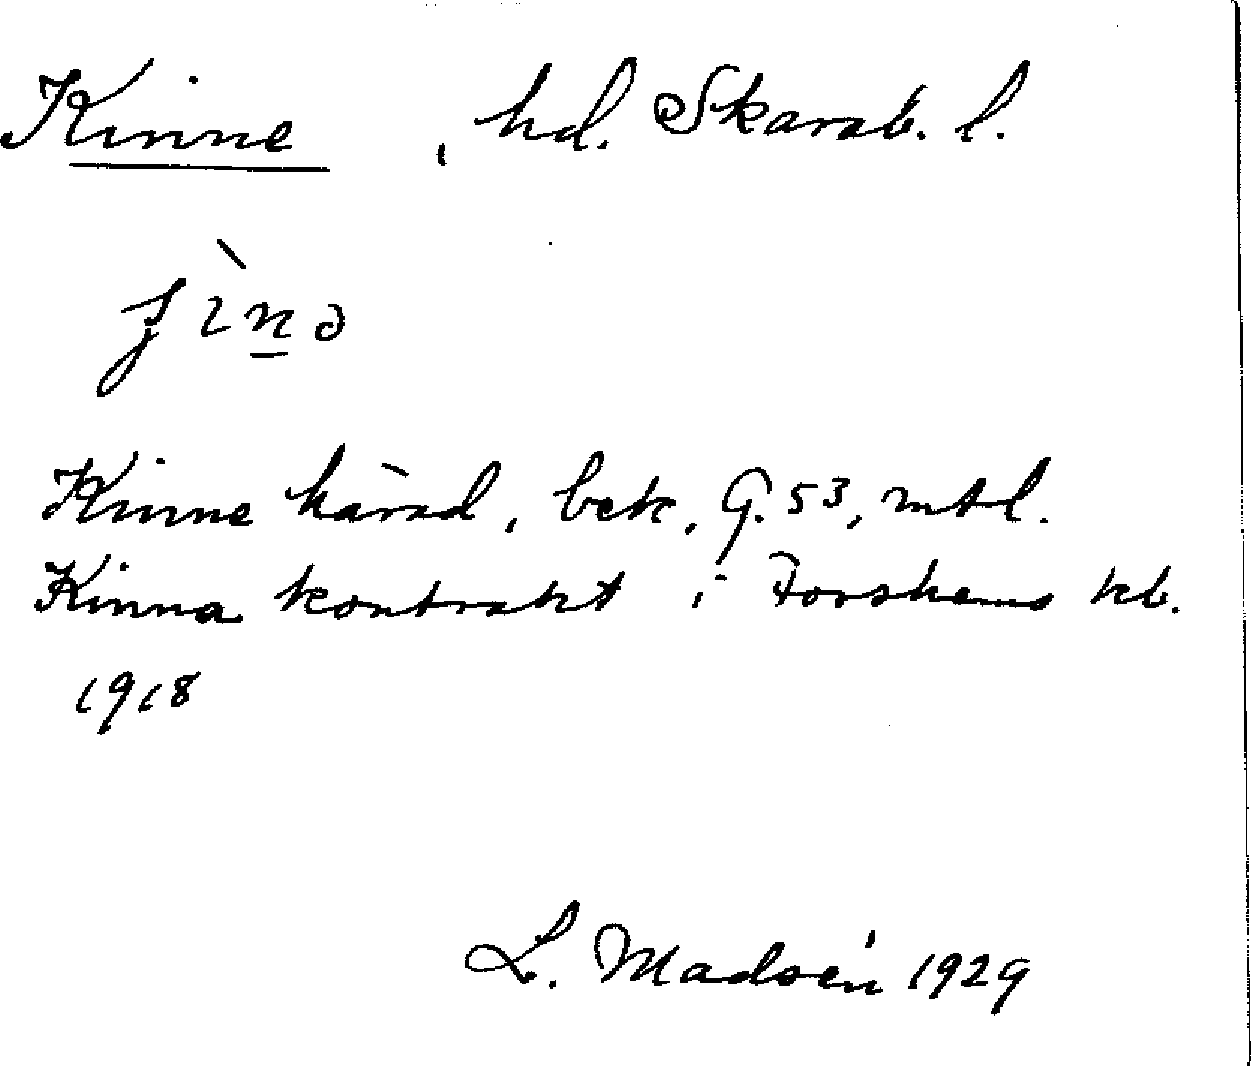 Kinne, hd. Skarab. l.
Kinne härad, bek. G. 53, mtl.
Kinna kontrakt i Forshems kb.
1918
L. Madsén 1929